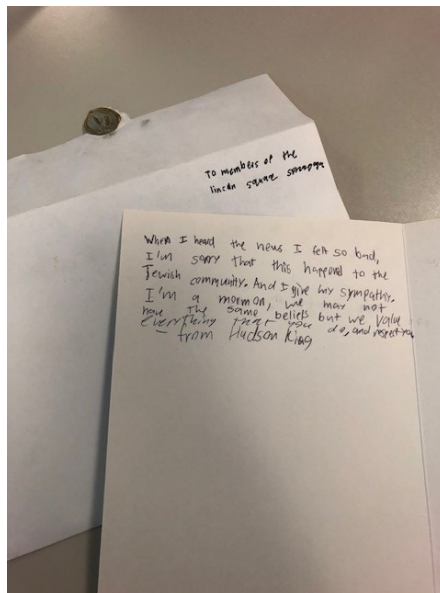 To members of the
lincon square synagoga
When I heard the news I felt so bad,
I'm sorry that this happend to the
Jewish community. And I give my sympathy.
I'm a mormon, we may not
have the same beliefs but we value
everything that you do, and respect you
- from Hudson King